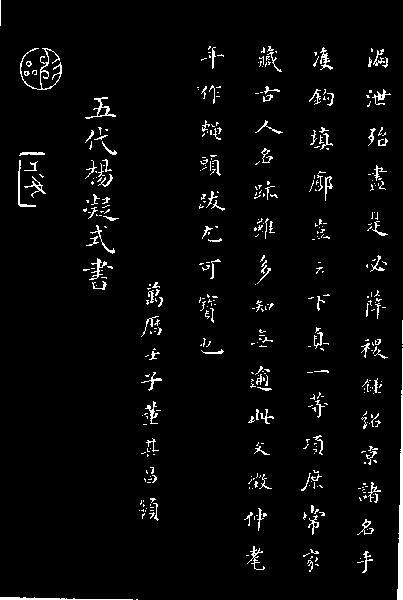 漏泄殆盡是必薛稷鍾紹京諸名手
雙鈎填廓豈云下真一等項庶常家
藏古人名跡雖多知無逾此文徵仲耄
年作蠅頭跋尤可寶也
萬曆壬子董其昌題
五代楊凝式書